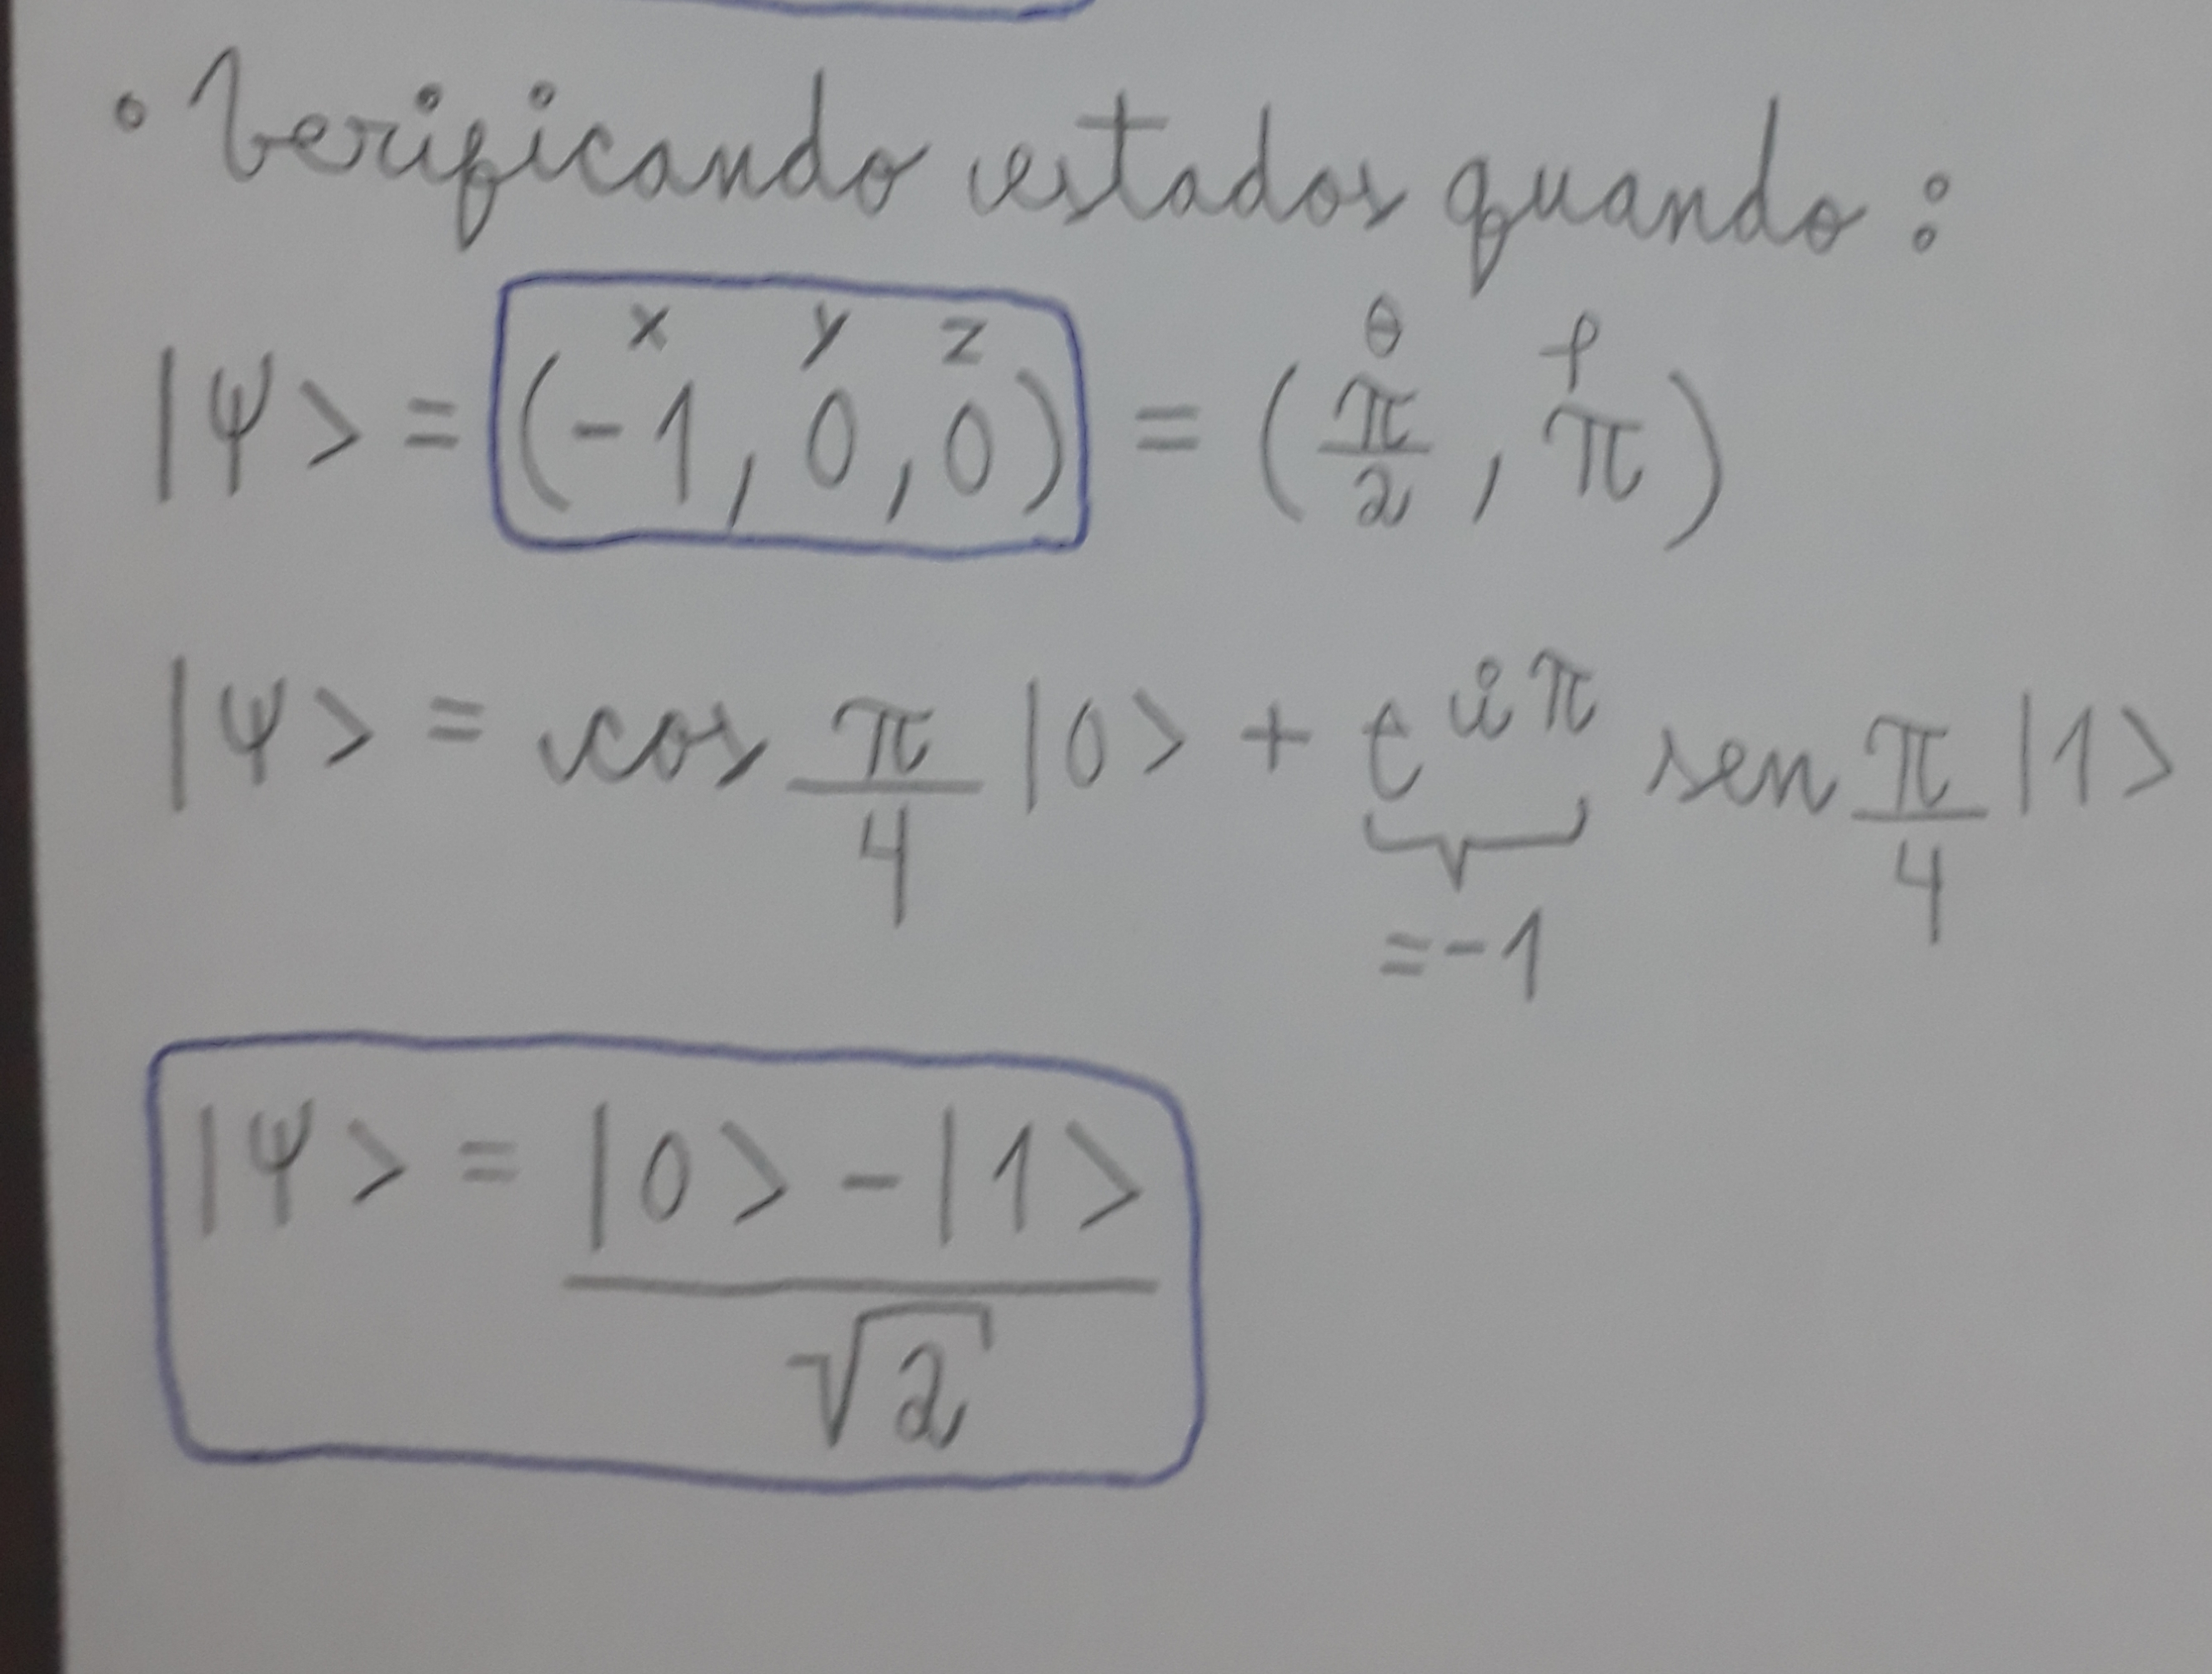 • Verificando estados quando:
x y z θ φ
|ψ> = (-1, 0, 0) = (π/2, π)
|ψ> = cos π/4 |0> + e^{iπ} sen π/4 |1>
= -1
|ψ> = |0> - |1> / √2